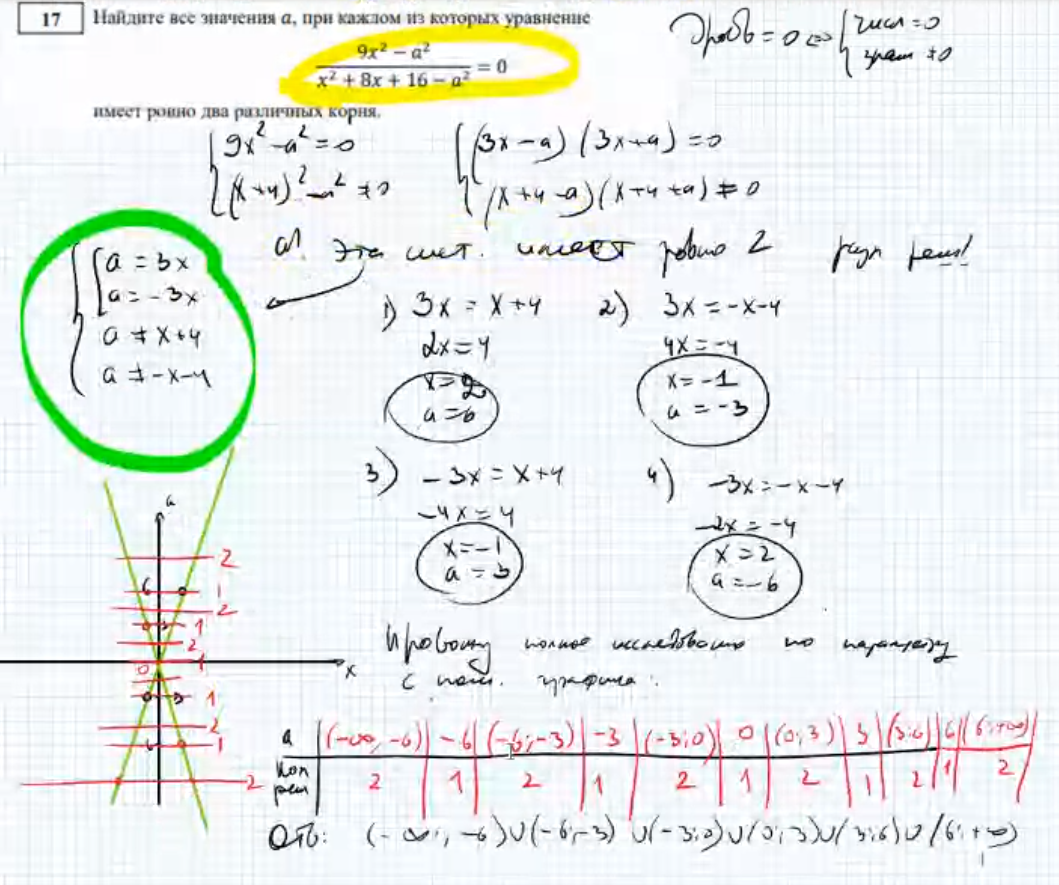 17 Найдите все значения a, при каждом из которых уравнение
(9x² − a²)/(x² + 8x + 16 − a²) = 0
имеет ровно два различных корня.
Дробь = 0 ⇔ { числ = 0
знам ≠ 0
{ 9x² − a² = 0
(x+4)² − a² ≠ 0
{ (3x−a)(3x+a) = 0
(x+4−a)(x+4+a) ≠ 0
a! Эта сист. имеет ровно 2 разл реш!
{ [ a = 3x
a = −3x
a ≠ x+4
a ≠ −x−4
1) 3x = x+4
2x = 4
x = 2
a = 6
2) 3x = −x−4
4x = −4
x = −1
a = −3
3) −3x = x+4
−4x = 4
x = −1
a = 3
4) −3x = −x−4
−2x = −4
x = 2
a = −6
a
2
6 1
2
1
2
0 1
x
1
2
1
2
Проведу полное исследование по параметру
с пом. графика:
a | (−∞, −6) | −6 | (−6; −3) | −3 | (−3; 0) | 0 | (0; 3) | 3 | (3; 6) | 6 | (6; +∞)
Кол реш | 2 | 1 | 2 | 1 | 2 | 1 | 2 | 1 | 2 | 1 | 2
Отв: (−∞; −6)∪(−6;−3)∪(−3;0)∪(0;3)∪(3;6)∪(6;+∞)